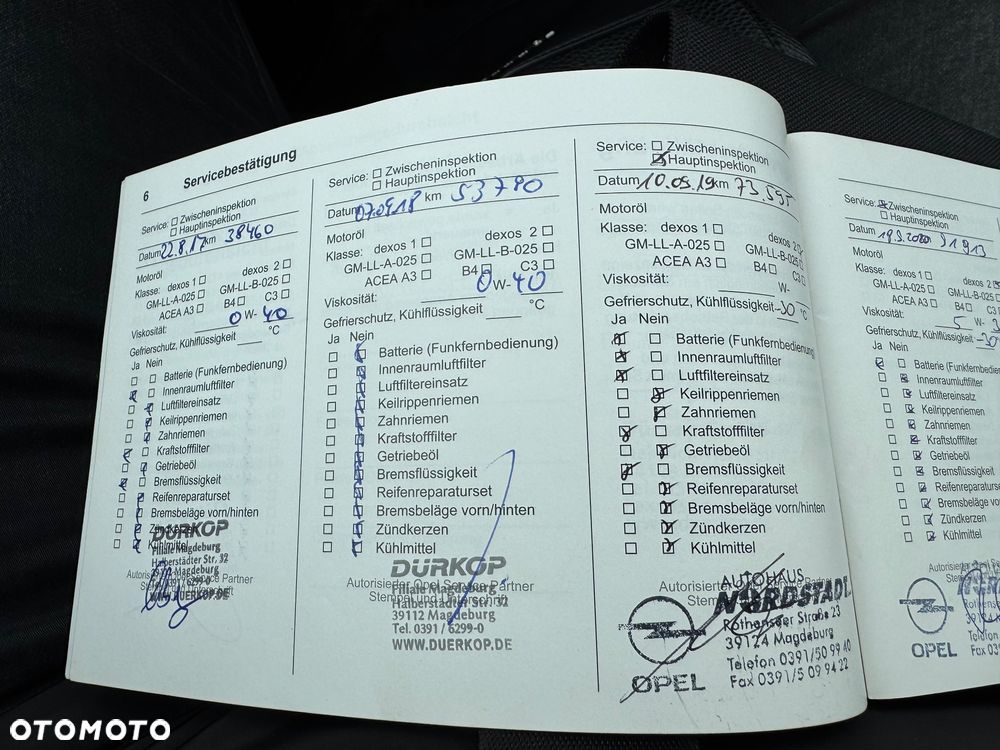 6 Servicebestätigung
Service: ☐ Zwischeninspektion
☐ Hauptinspektion
Datum 22.8.17 km 38460
Motoröl
Klasse: dexos 1 ☐ dexos 2 ☐
GM-LL-A-025 ☐ GM-LL-B-025 ☐
ACEA A3 ☐ B4 ☐ C3 ☐
Viskosität: 0 W- 40
Gefrierschutz, Kühlflüssigkeit °C
Ja Nein
☐ ☐ Batterie (Funkfernbedienung)
☒ ☐ Innenraumluftfilter
☐ ☒ Luftfiltereinsatz
☐ ☒ Keilrippenriemen
☐ ☒ Zahnriemen
☒ ☐ Kraftstofffilter
☐ ☒ Getriebeöl
☒ ☐ Bremsflüssigkeit
☐ ☒ Reifenreparaturset
☐ ☒ Bremsbeläge vorn/hinten
☐ ☒ Zündkerzen
☐ ☒ Kühlmittel
DÜRKOP
Filiale Magdeburg
Halberstädter Str. 32
39112 Magdeburg
Tel. 0391 / 6299-0
WWW.DUERKOP.DE
Service: ☐ Zwischeninspektion
☐ Hauptinspektion
Datum 07.09.18 km 53790
Motoröl
Klasse: dexos 1 ☐ dexos 2 ☐
GM-LL-A-025 ☐ GM-LL-B-025 ☐
ACEA A3 ☐ B4 ☐ C3 ☐
Viskosität: 0 W- 40
Gefrierschutz, Kühlflüssigkeit °C
Ja Nein
☐ ☒ Batterie (Funkfernbedienung)
☐ ☒ Innenraumluftfilter
☐ ☒ Luftfiltereinsatz
☐ ☒ Keilrippenriemen
☐ ☒ Zahnriemen
☐ ☒ Kraftstofffilter
☐ ☒ Getriebeöl
☐ ☒ Bremsflüssigkeit
☐ ☒ Reifenreparaturset
☐ ☒ Bremsbeläge vorn/hinten
☐ ☒ Zündkerzen
☐ ☒ Kühlmittel
DÜRKOP
Autorisierter Opel Service Partner
Filiale Magdeburg
Stempel und Unterschrift
Halberstädter Str. 32
39112 Magdeburg
Tel. 0391 / 6299-0
WWW.DUERKOP.DE
Service: ☐ Zwischeninspektion
☒ Hauptinspektion
Datum 10.09.19 km 73.595
Motoröl
Klasse: dexos 1 ☐ dexos 2 ☐
GM-LL-A-025 ☐ GM-LL-B-025 ☐
ACEA A3 ☐ B4 ☐ C3 ☐
Viskosität: W-
Gefrierschutz, Kühlflüssigkeit -30 °C
Ja Nein
☒ ☐ Batterie (Funkfernbedienung)
☒ ☐ Innenraumluftfilter
☒ ☐ Luftfiltereinsatz
☐ ☒ Keilrippenriemen
☐ ☒ Zahnriemen
☒ ☐ Kraftstofffilter
☐ ☒ Getriebeöl
☒ ☐ Bremsflüssigkeit
☐ ☒ Reifenreparaturset
☐ ☒ Bremsbeläge vorn/hinten
☐ ☒ Zündkerzen
☐ ☒ Kühlmittel
AUTOHAUS
NORDSTADT
Rothenseer Straße 23
39124 Magdeburg
Telefon 0391/50 99 40
Fax 0391/5 09 94 22
OPEL
Service: ☒ Zwischeninspektion
☐ Hauptinspektion
Datum 19.9.2020 91913
Motoröl
Klasse: dexos 1 ☐ dexos 2
GM-LL-A-025 ☐ GM-LL-B-025
ACEA A3 ☐ B4 ☐ C3
Viskosität: 5 W- 3
Gefrierschutz, Kühlflüssigkeit -30
Ja Nein
☒ ☐ Batterie (Funkfernbedien
☐ ☒ Innenraumluftfilter
☐ ☒ Luftfiltereinsatz
☐ ☒ Keilrippenriemen
☐ ☒ Zahnriemen
☐ ☒ Kraftstofffilter
☐ ☒ Getriebeöl
☐ ☒ Bremsflüssigkeit
☐ ☒ Reifenreparaturset
☐ ☒ Bremsbeläge vorn/hinten
☐ ☒ Zündkerzen
☐ ☒ Kühlmittel
OPEL
OTOMOTO